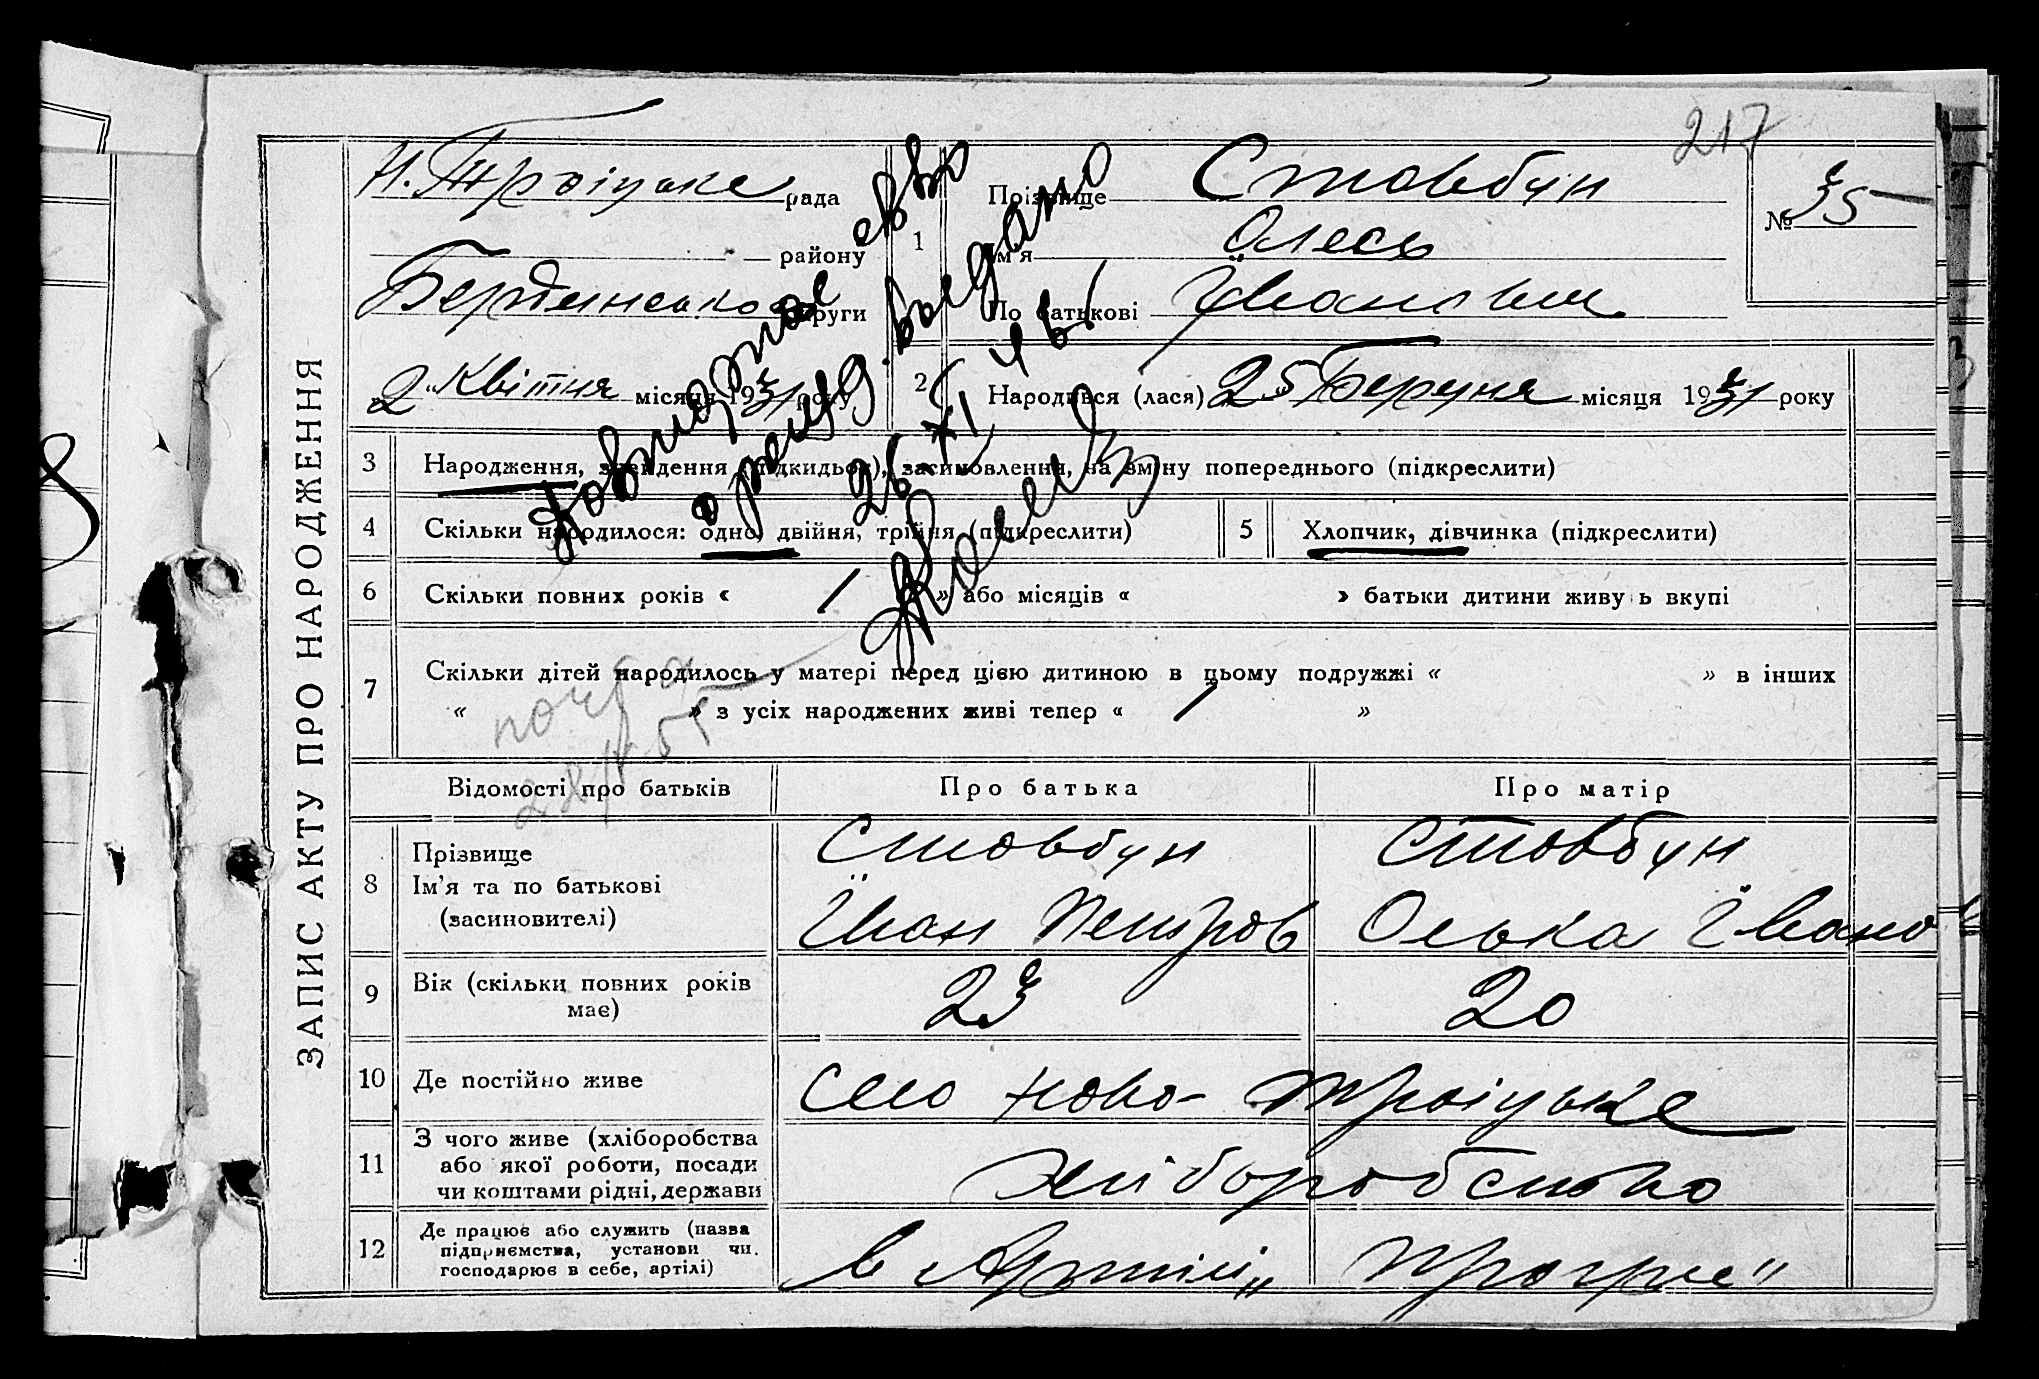 217
Н. Троіцьке рада
району
Бердянсько округи
2 Квітня місяця 1931 року
1 Прізвище Стовбун
Ім'я Олесь
По батькові Іванович
№ 35
2 Народився (лася) 25 Березня місяця 1931 року
ЗАПИС АКТУ ПРО НАРОДЖЕННЯ
3 Народження, знайдення (підкидьок), засиновлення, на зміну попереднього (підкреслити)
4 Скільки народилося: одно, двійня, трійня (підкреслити)
5 Хлопчик, дівчинка (підкреслити)
6 Скільки повних років « / » або місяців « » батьки дитини живуть вкупі
7 Скільки дітей народилось у матері перед цією дитиною в цьому подружжі « » в інших
« » з усіх народжених живі тепер « / »
Повторное св-во
о рожд. выдано
26 XI 46
Відомості про батьків Про батька Про матір
8 Прізвище
Ім'я та по батькові
(засиновителі)
Стовбун
Іван Петров
Стовбун
Олька Івано
9 Вік (скільки повних років
має)
23 20
10 Де постійно живе село Ново-Троіцьке
11 З чого живе (хліборобства
або якої роботи, посади
чи коштами рідні, держави
хліборобство
12 Де працює або служить (назва
підприємства, установи чи
господарює в себе, артілі)
в Артілі „Прогрес"